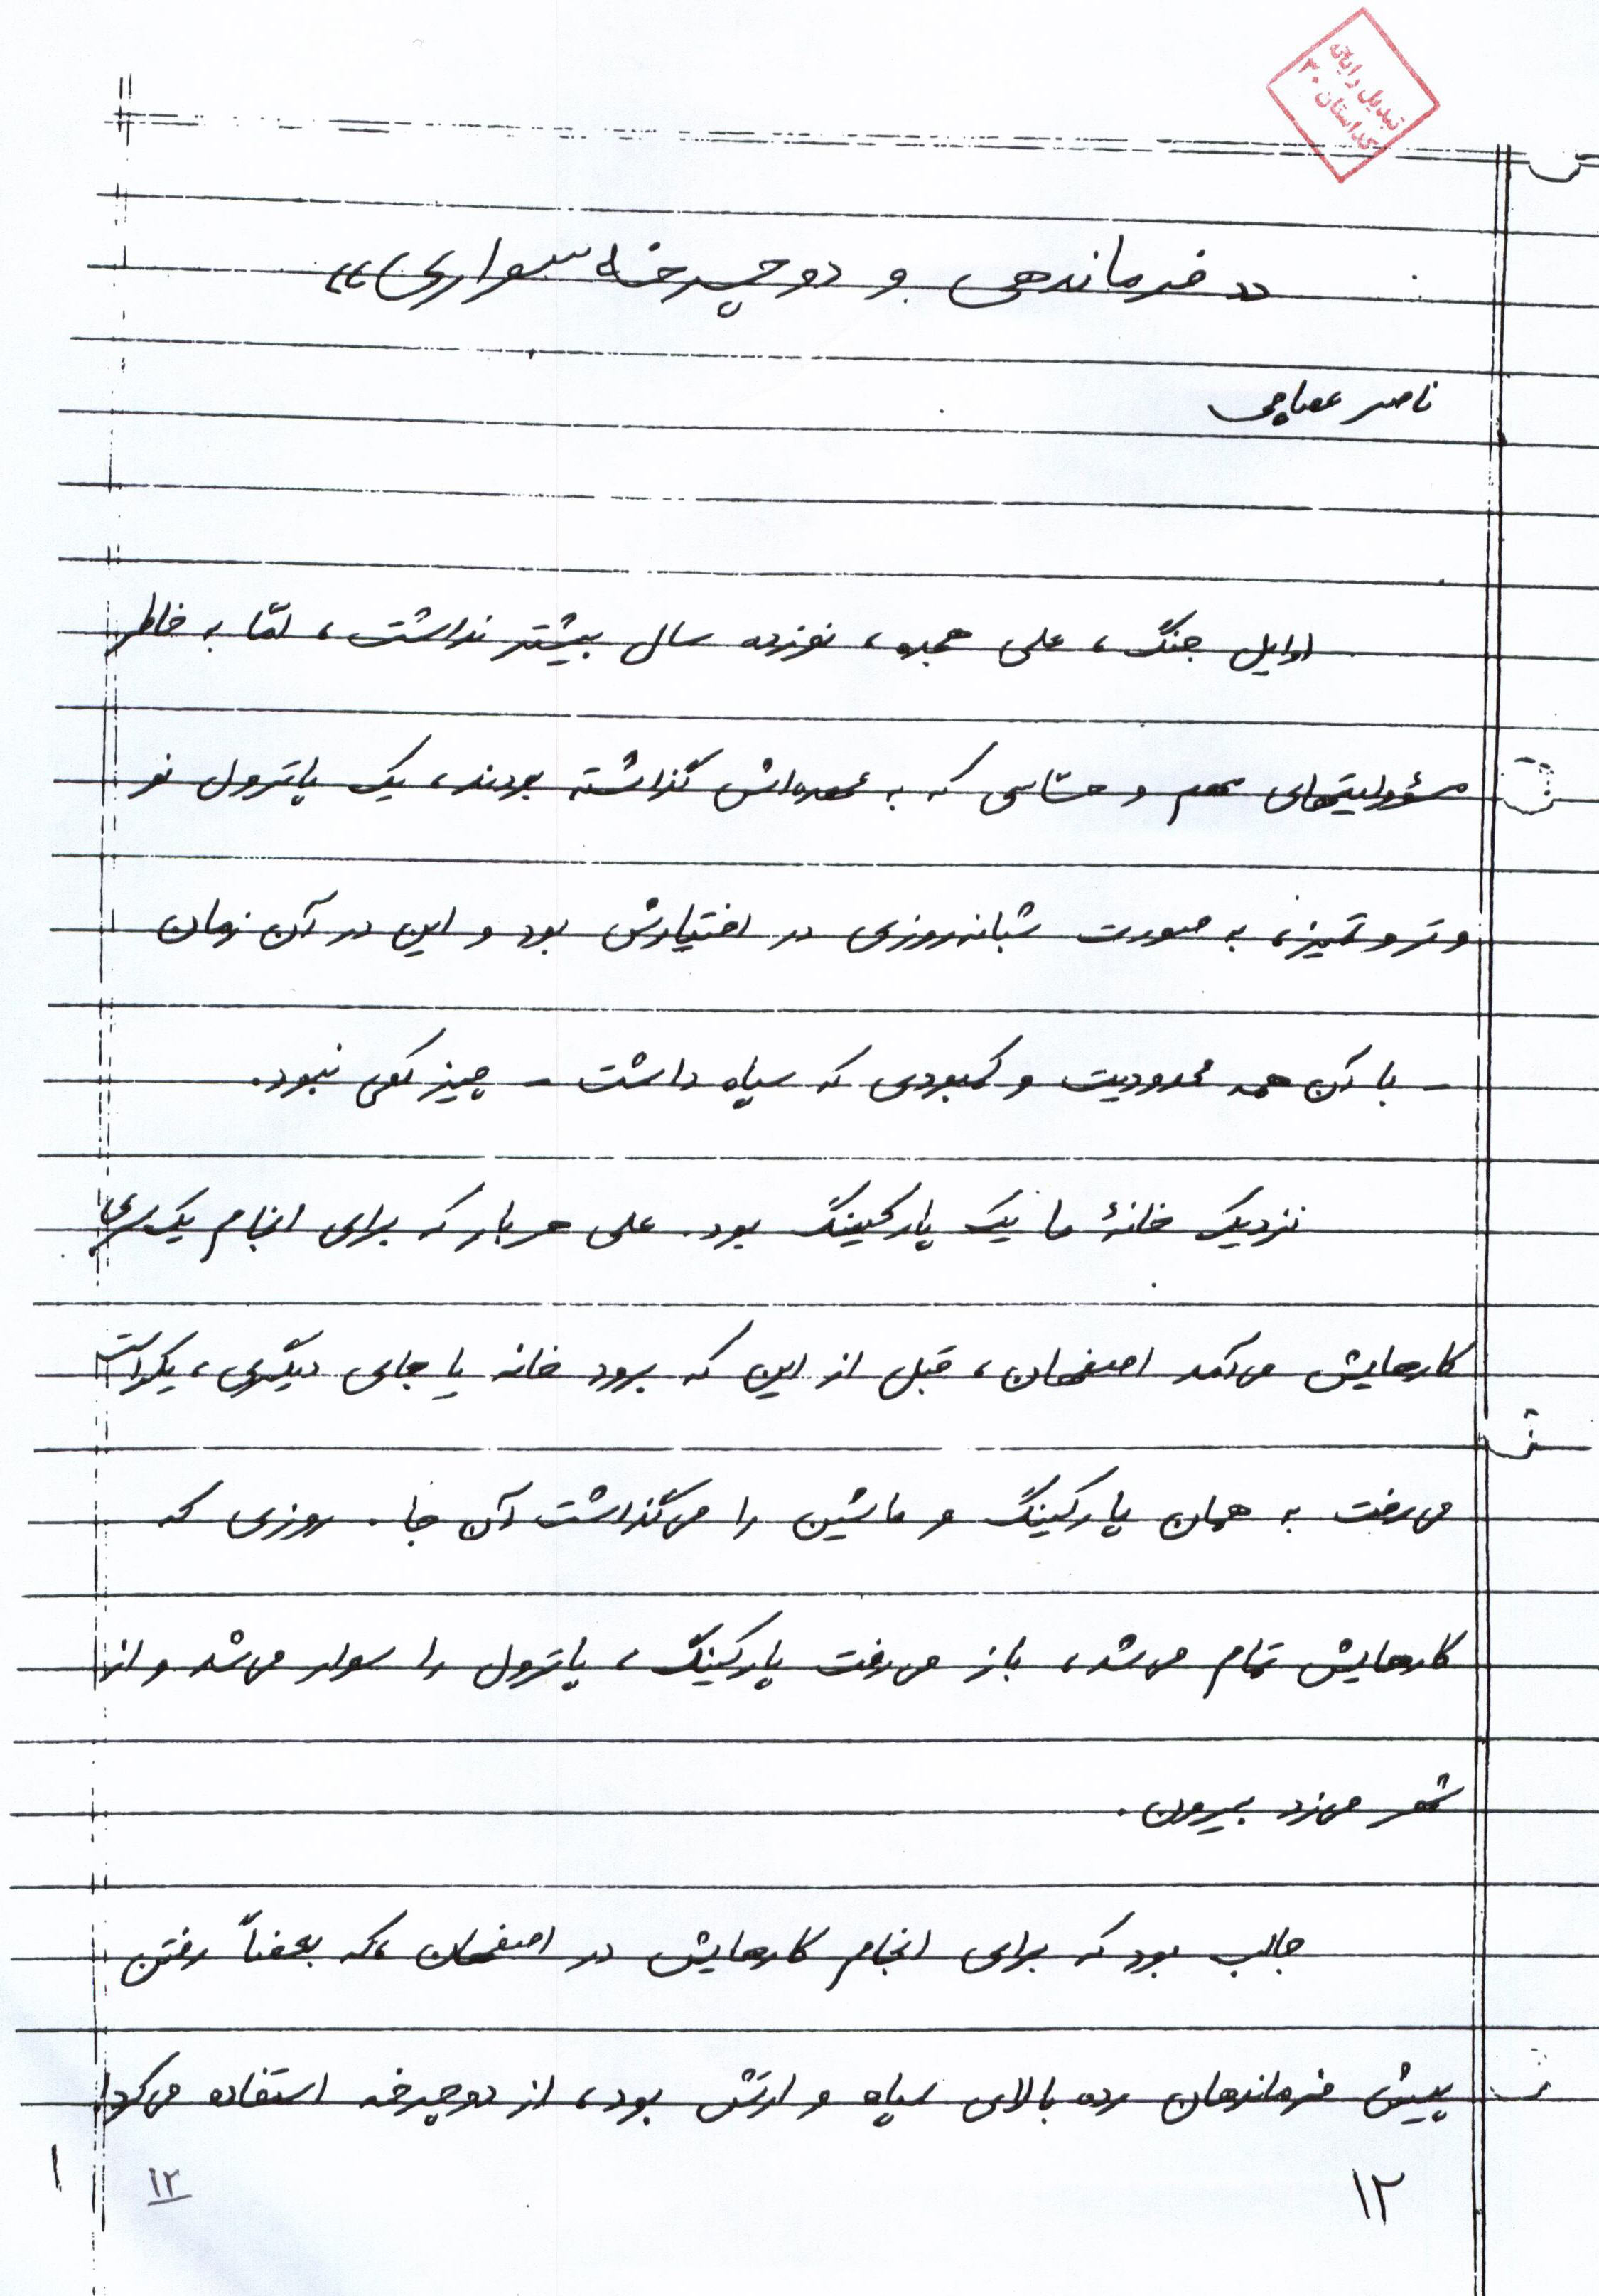 تبدیل رایانه
ی داستان ۳۰
«فرماندهی و دوچرخه سواری»
ناصر
اوایل جنگ، علی هجده، نوزده سال بیشتر نداشت، امّا به خاطر
مسؤولیتهای مهم و حسّاسی که به عهده‌اش گذاشته بودند، یک پاترول نو
و تر و تمیز، به صورت شبانه‌روزی در اختیارش بود و این در آن زمان
- با آن همه محدودیت و کمبودی که سپاه داشت - چیز کمی نبود.
نزدیک خانهٔ ما یک پارکینگ بود. علی هر بار که برای انجام یک سری
کارهایش می‌آمد اصفهان، قبل از این که برود خانه یا جای دیگری، یکراست
می‌رفت به همان پارکینگ و ماشین را می‌گذاشت آن جا. روزی که
کارهایش تمام می‌شد، باز می‌رفت پارکینگ، پاترول را سوار می‌شد و از
شهر می‌زد بیرون.
جالب بود که برای انجام کارهایش در اصفهان، که بعضاً رفتن
پیش فرماندهان رده بالای سپاه و ارتش بود، از دوچرخه استفاده می‌کرد!
۱۲
۱۲
۱